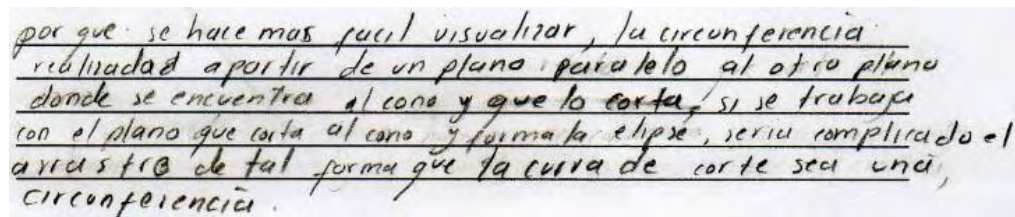 por que se hace mas facil visualizar, la circunferencia
realizadas apartir de un plano paralelo al otro plano
donde se encuentra el cono y que lo corta, si se trabaja
con el plano que corta al cono y forma la elipse, seria complicado el
arrastre de tal forma que la curva de corte sea una,
circunferencia.